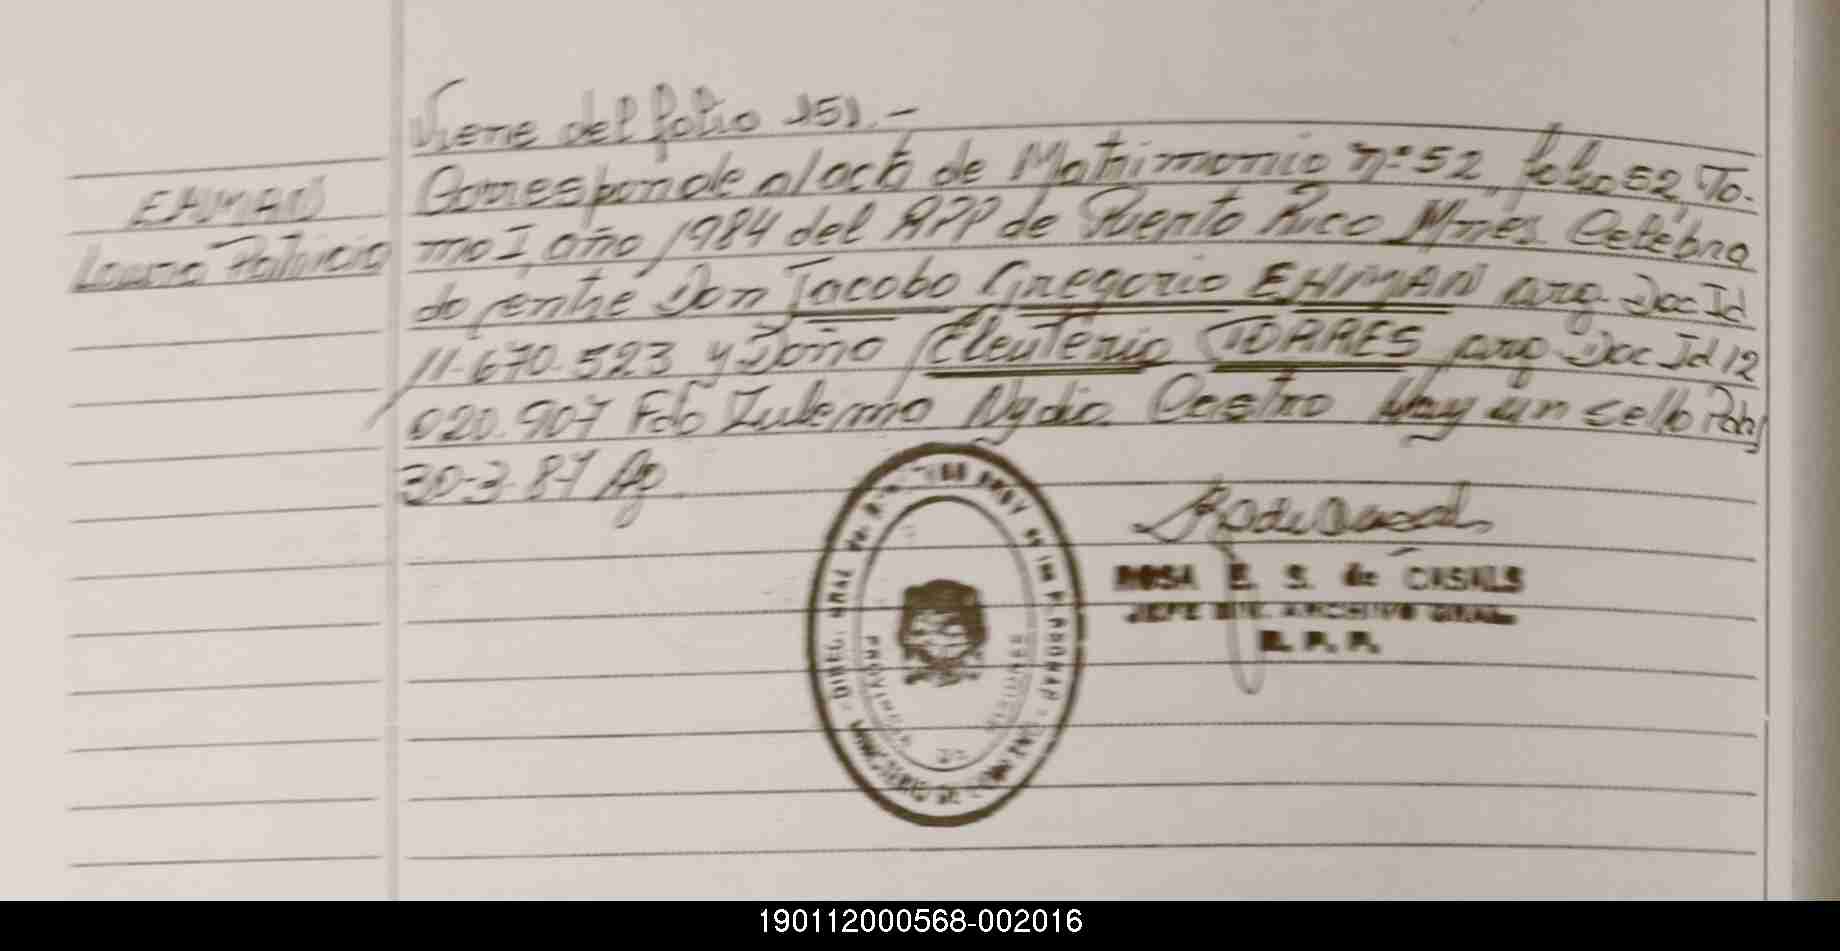 Viene del folio 151.-
EHMAN
Laura Patricia
Corresponde al acta de Matrimonio nº 52, folio 52, To-
mo I, año 1984 del RPP de Puerto Rico Mnes. Celebra
do entre Don Jacobo Gregorio EHMAN arg. Doc Id
11.670.523 y Doña Eleuteria TORRES arg Doc Id 12
020.907 Fdo Zulema Nydia Castro Hay un sello
30-3-87
ROSA E. S. de CASALS
JEFE DIV. ARCHIVO GRAL.
R. P. P.
PROVINCIA DE MISIONES
MINISTERIO DE
190112000568-002016